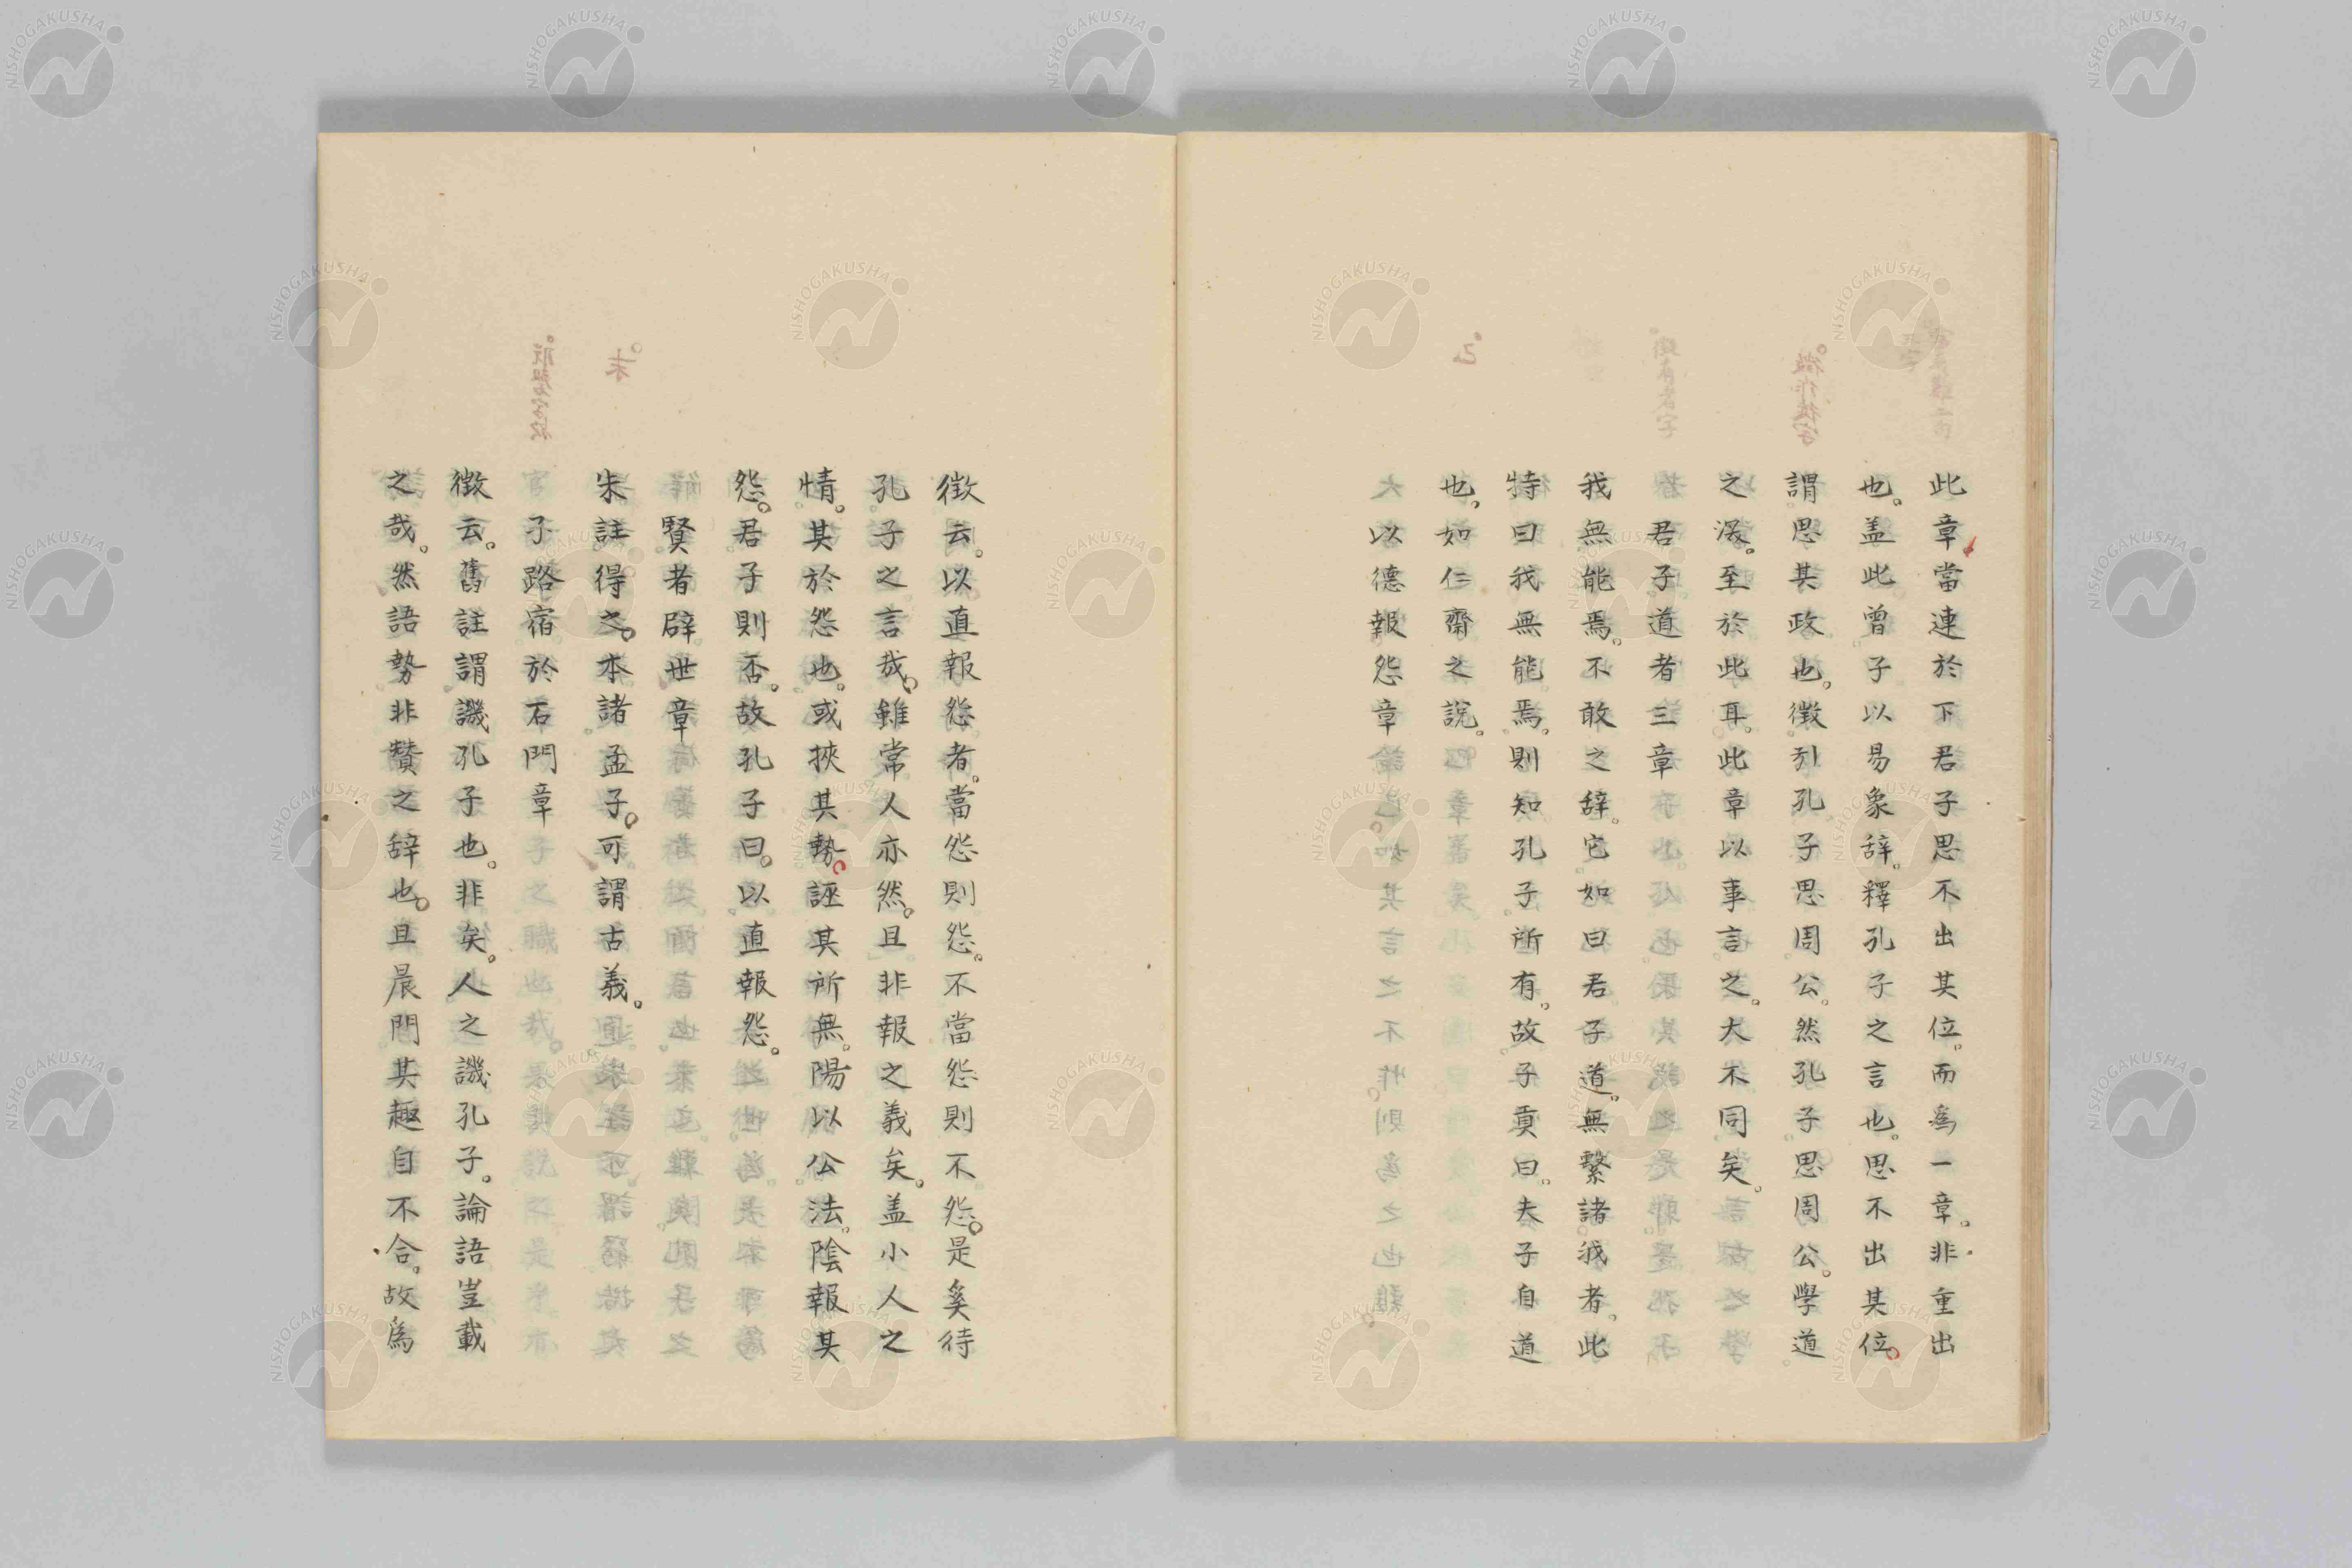 此章當連於下君子思不出其位。而爲一章。非重出
也。盖此曾子以易象辞。釋孔子之言也。思不出其位。
謂思其政也。徵引孔子思周公。然孔子思周公。學道
之深。至於此耳。此章以事言之。大不同矣。
君子道者三章
我無能焉。不敢之辞。它如曰君子道。無繫諸我者。此
特曰我無能焉。則知孔子所有。故子貢曰。夫子自道
也。如仁齋之說。
以德報怨章
徵云。以直報怨者。當怨則怨。不當怨則不怨。是奚待
孔子之言哉。雖常人亦然。且非報之義矣。盖小人之
情。其於怨也。或挾其勢。誣其所無。陽以公法。陰報其
怨。君子則否。故孔子曰。以直報怨。
賢者辟世章
朱註得之。本諸孟子。可謂古義。
子路宿於石門章
徵云。舊註謂譏孔子也。非矣。人之譏孔子。論語豈載
之哉。然語勢非贊之辞也。且晨門其趣自不合。故爲
NISHOGAKUSHA